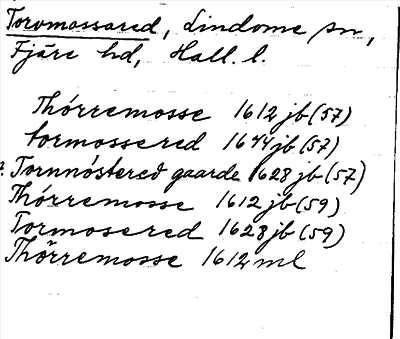 Torvmossared, Lindome sn,
Fjäre hd, Hall. l.
Thórremosse 1612 jb (57)
tormossered 1644 jb (57)
?. Tornmóstered gaarde 1628 jb (57)
Thórremosse 1612 jb (59)
Tormosered 1628 jb (59)
Thörremosse 1612 ml